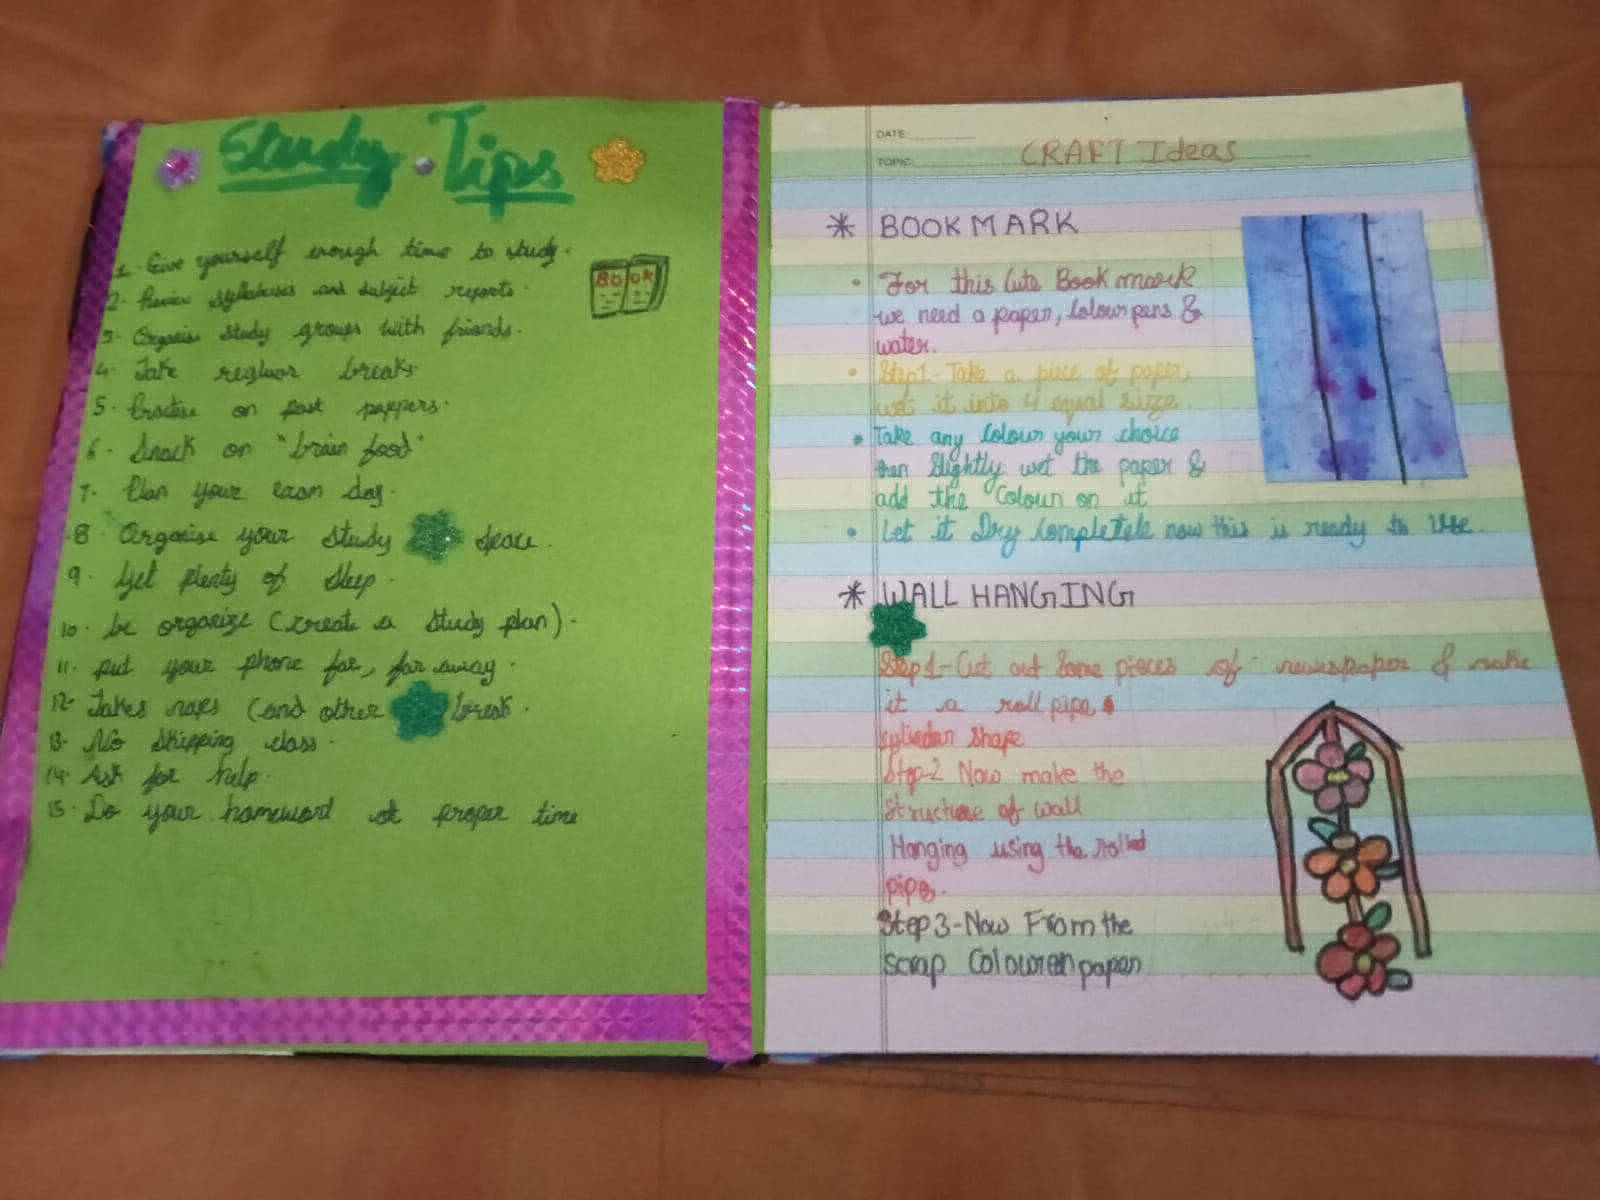 Study Tips
1. Give yourself enough time to study.
2. Review syllabuses and subject reports.
3. Organise study groups with friends.
4. Take regluar breaks.
5. Practise on past peppers.
6. Snack on "brain food"
7. Plan your exam day.
8. Organise your study space.
9. Get plenty of sleep.
10. be organize (create a study plan).
11. put your phone far, far away.
12. Takes naps (and other break.
13. No skipping class.
14. Ask for help.
15. Do your homeword at proper time
BOOK
DATE:
TOPIC: CRAFT Ideas
* BOOKMARK
• For this Cute Book mark
we need a paper, Colour pens &
water.
• Step1-Take a piece of paper,
it into 4 equal size.
• Take any Colour your choice
then Slightly wet the paper &
add the Colour on it
• Let it Dry Completele now this is ready to Use.
* WALL HANGING
Step1-Cut out Some pieces of newspaper & make
it a roll pipe,
shape
Step-2 Now make the
Structure of wall
Hanging using the rolled
pipe.
Step3-Now From the
scrap Colouren paper